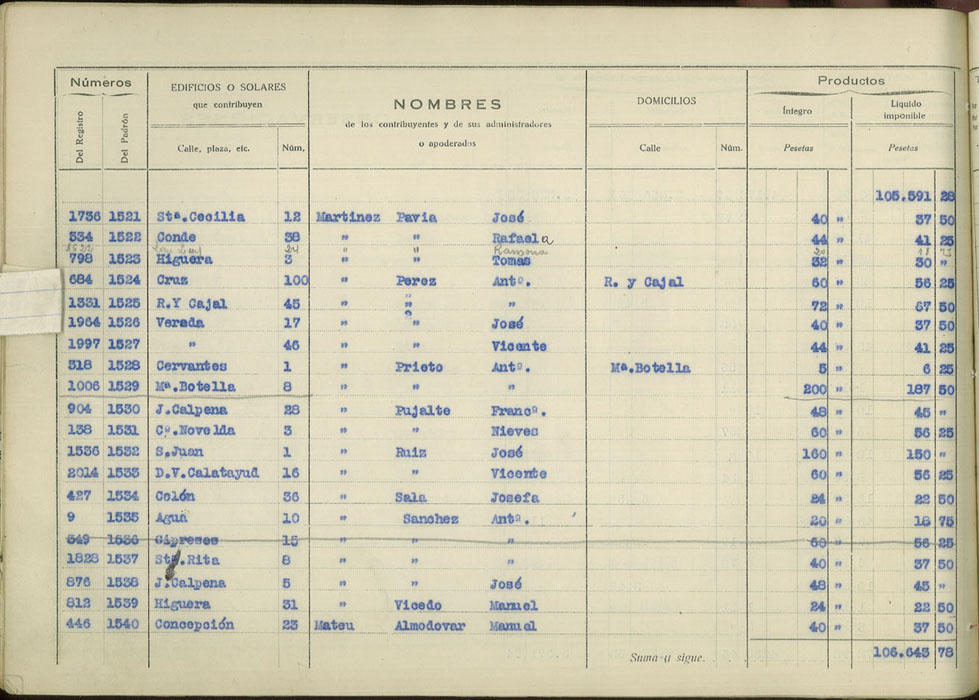 Números EDIFICIOS O SOLARES que contribuyen NOMBRES de los contribuyentes y de sus administradores o apoderados DOMICILIOS Productos
Del Registro Del Padrón Calle, plaza, etc. Núm, Calle Núm. Íntegro Pesetas Líquido imponible Pesetas
105.591 28
1736 1521 Stª.Cecilia 12 Martinez Pavia José 40 " 37 50
334 1522 Conde 38 " " Rafaela 44 " 41 25
1522 24 " " Ramona 20 18 75
798 1523 Higuera 3 " " Tomas 32 " 30 "
684 1524 Cruz 100 " Perez Antº. R. y Cajal 60 " 56 25
1331 1525 R.Y Cajal 45 " " " 72 " 67 50
1964 1526 Vereda 17 " " José 40 " 37 50
1997 1527 " 46 " " Vicente 44 " 41 25
318 1528 Cervantes 1 " Prieto Antº. Mª.Botella 5 " 6 25
1006 1529 Mª.Botella 8 " " " 200 " 187 50
904 1530 J.Calpena 28 " Pujalte Francº. 48 " 45 "
138 1531 Cº.Novelda 3 " " Nieves 60 " 56 25
1536 1532 S.Juan 1 " Ruiz José 160 " 150 "
2014 1533 D.V.Calatayud 16 " " Vicente 60 " 56 25
427 1534 Colón 36 " Sala Josefa 24 " 22 50
9 1535 Agua 10 " Sanchez Antº. 20 " 18 75
849 1536 Cipreses 15 " " " 60 " 56 25
1828 1537 Stª.Rita 8 " " " 40 " 37 50
876 1538 J.Calpena 5 " " José 48 " 45 "
812 1539 Higuera 31 " Vicedo Manuel 24 " 22 50
446 1540 Concepción 23 Mateu Almodovar Manuel 40 " 37 50
Suma y sigue. 106.643 78